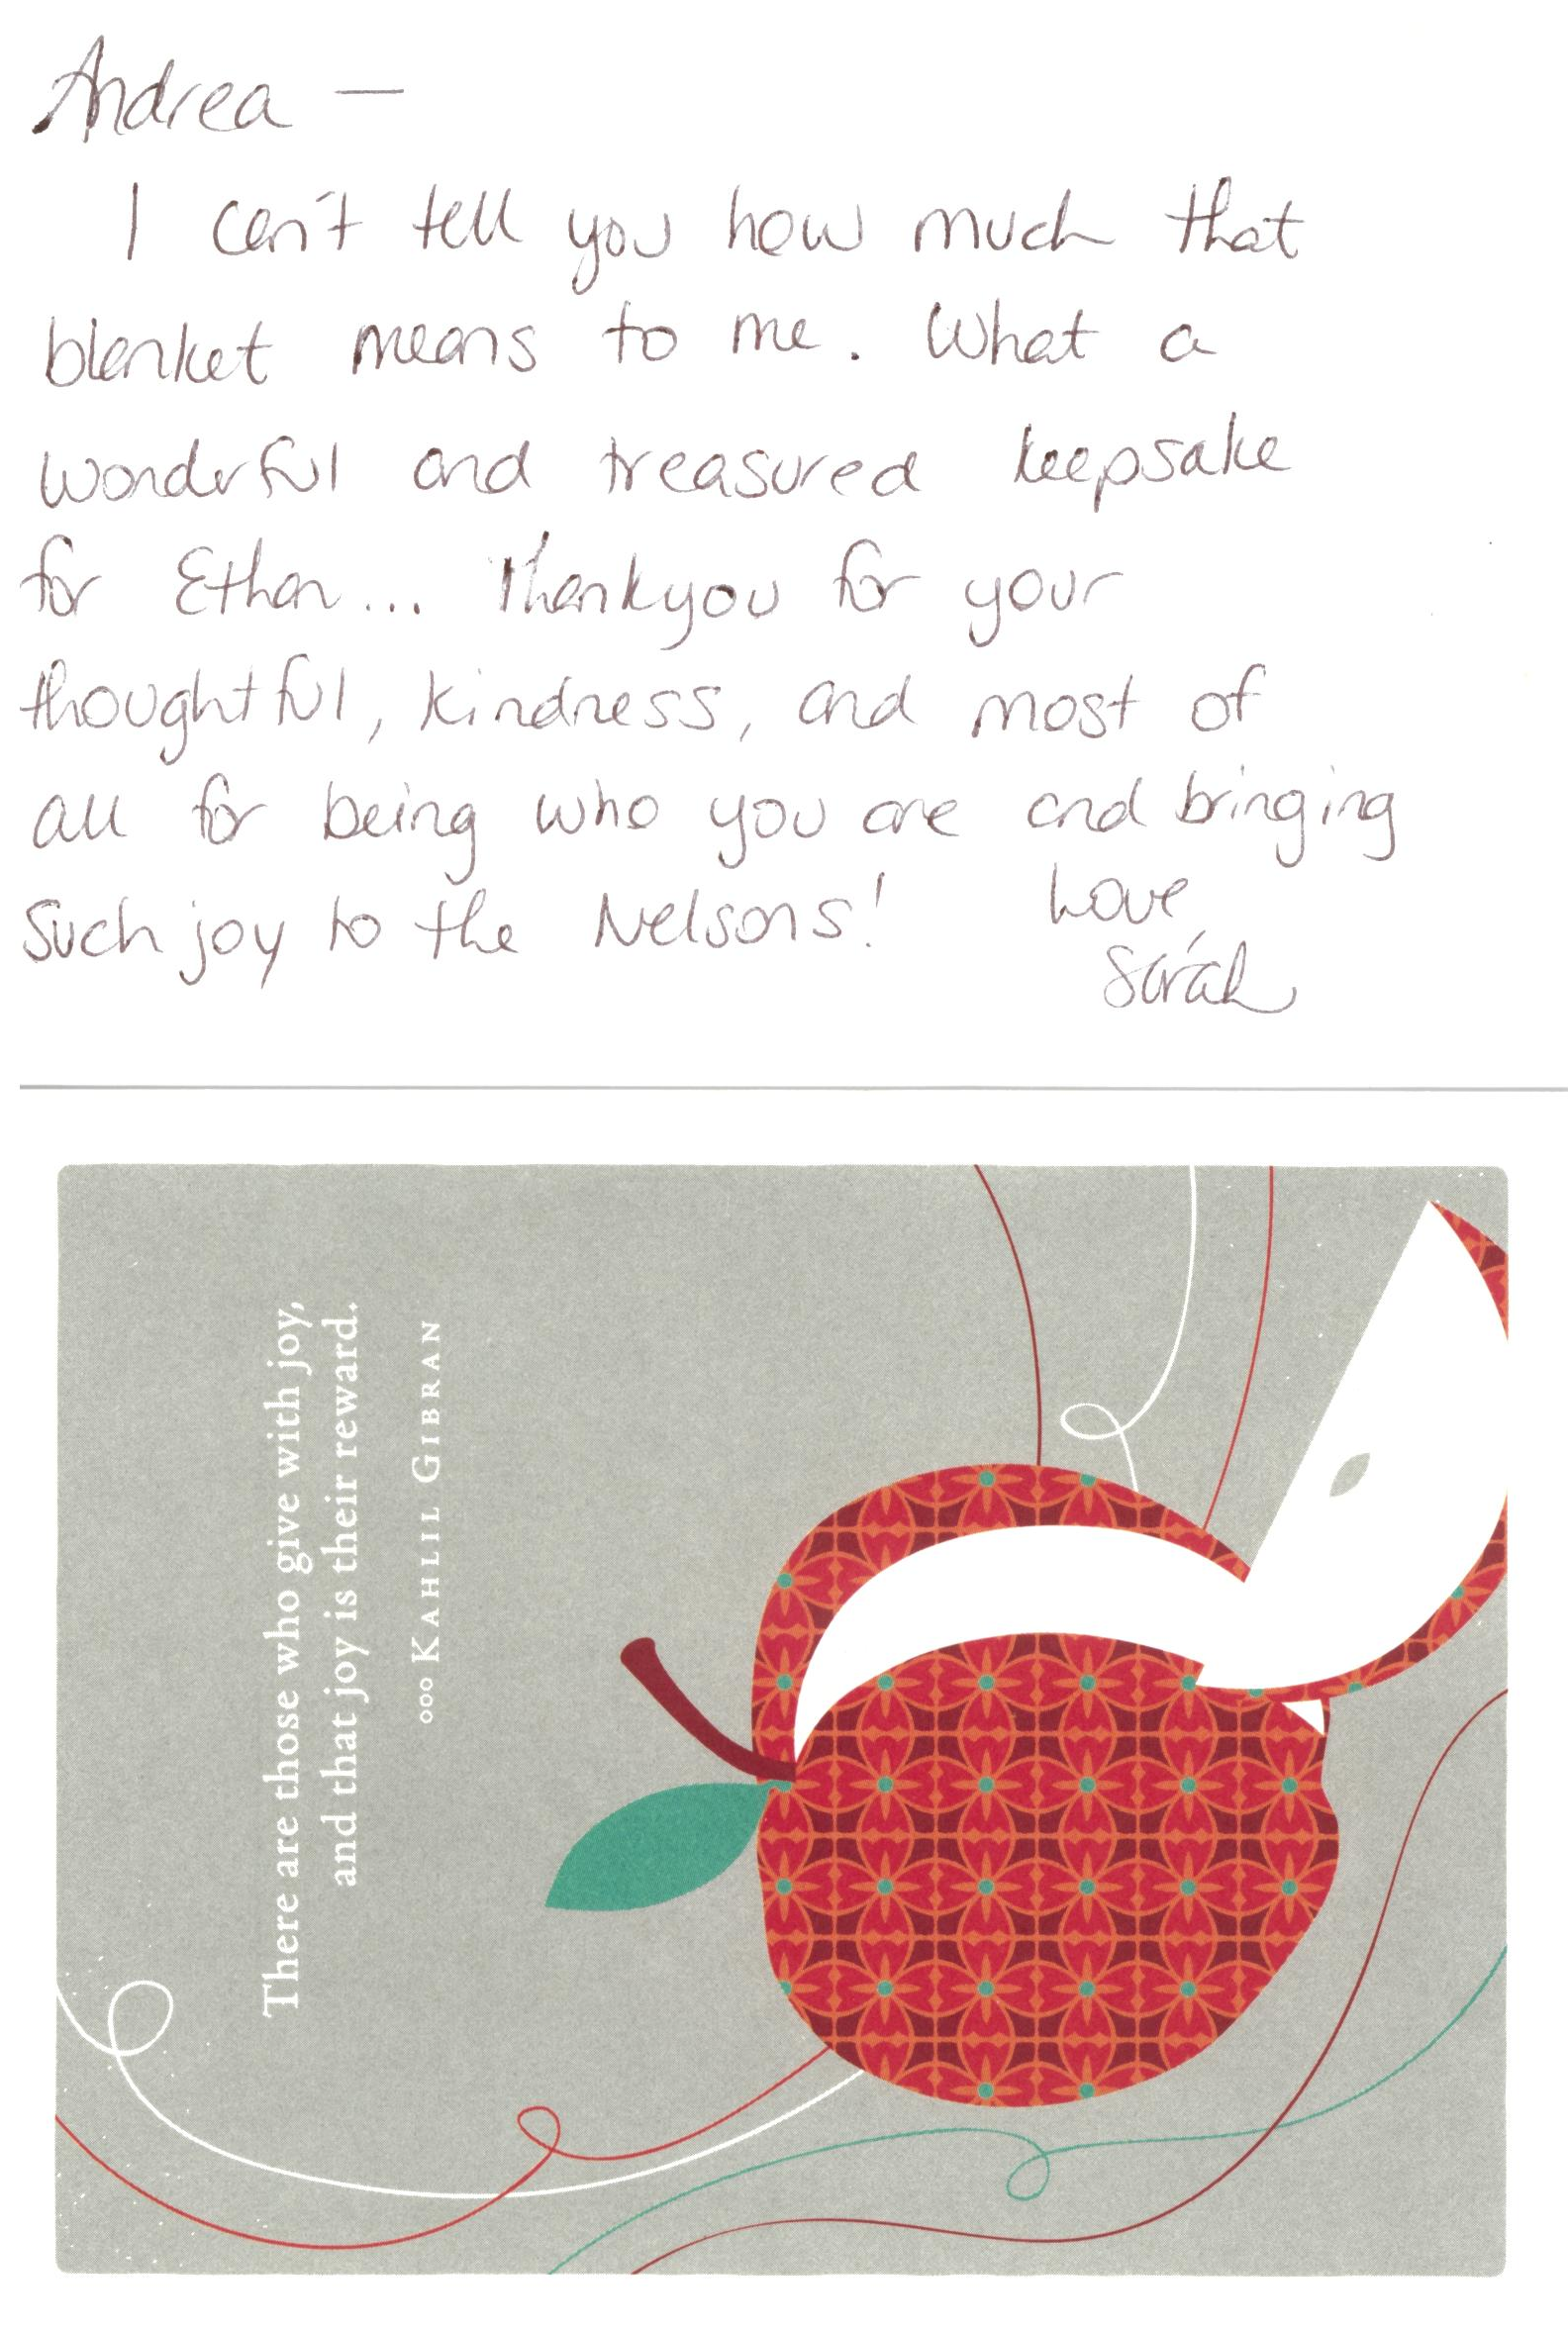 Andrea —
I can't tell you how much that
blanket means to me. What a
wonderful and treasured keepsake
for Ethan... Thankyou for your
thoughtful, kindness, and most of
all for being who you are and bringing
such joy to the Nelsons!
Love,
Sarah
There are those who give with joy,
and that joy is their reward.
ooo KAHLIL GIBRAN